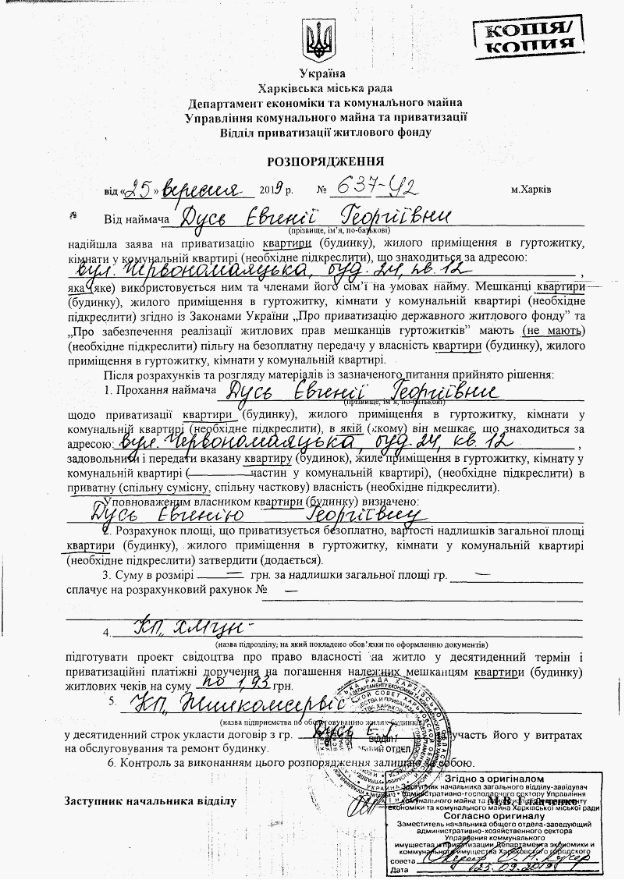 КОПІЯ/
КОПИЯ
Україна
Харківська міська рада
Департамент економіки та комунального майна
Управління комунального майна та приватизації
Відділ приватизації житлового фонду
РОЗПОРЯДЖЕННЯ
від «25» вересня 2019 р. № 637-У2 м.Харків
Від наймача Дусь Евгенії Георгіївни
(прізвище, ім’я, по-батькові)
надійшла заява на приватизацію квартири (будинку), жилого приміщення в гуртожитку,
кімнати у комунальній квартирі (необхідне підкреслити), що знаходиться за адресою:
вул. Червономаяцька, буд. 24, кв. 12 ,
яка (яке) використовується ним та членами його сім’ї на умовах найму. Мешканці квартири
(будинку), жилого приміщення в гуртожитку, кімнати у комунальній квартирі (необхідне
підкреслити) згідно із Законами України „Про приватизацію державного житлового фонду” та
„Про забезпечення реалізації житлових прав мешканців гуртожитків” мають (не мають)
(необхідне підкреслити) пільгу на безоплатну передачу у власність квартири (будинку), жилого
приміщення в гуртожитку, кімнати у комунальній квартирі.
Після розрахунків та розгляду матеріалів із зазначеного питання прийнято рішення:
1. Прохання наймача Дусь Евгенії Георгіївни
(прізвище, ім’я, по-батькові)
щодо приватизації квартири (будинку), жилого приміщення в гуртожитку, кімнати у
комунальній квартирі (необхідне підкреслити), в якій (якому) він мешкає, що знаходиться за
адресою: вул. Червономаяцька, буд. 24, кв. 12 ,
задовольнити і передати вказану квартиру (будинок), жиле приміщення в гуртожитку, кімнату у
комунальній квартирі ( частин у комунальній квартирі), (необхідне підкреслити) в
приватну (спільну сумісну, спільну часткову) власність (необхідне підкреслити).
Уповноваженим власником квартири (будинку) визначено:
Дусь Евгенію Георгіївну
2. Розрахунок площі, що приватизується безоплатно, вартості надлишків загальної площі
квартири (будинку), жилого приміщення в гуртожитку, кімнати у комунальній квартирі
(необхідне підкреслити) затвердити (додається).
3. Суму в розмірі — грн. за надлишки загальної площі гр. —
сплачує на розрахунковий рахунок № —
4. КП „ХМЦН"
(назва підрозділу, на який покладено обов’язки по оформленню документів)
підготувати проект свідоцтва про право власності на житло у десятиденний термін і
приватизаційні платіжні доручення на погашення належних мешканцям квартири (будинку)
житлових чеків на суму по 1,93 грн.
5. КП „Жилкомсервіс"
(назва підприємства по обслуговуванню жилих будинків)
у десятиденний строк укласти договір з гр. Дусь Е. Г. участь його у витратах
на обслуговування та ремонт будинку.
6. Контроль за виконанням цього розпорядження залишаю за собою.
Заступник начальника відділу М.В.
Згідно з оригіналом
Заступник начальника загального відділу-завідувач
адміністративно-господарчого сектору Управління
комунального майна та приватизації Департаменту
економіки та комунального майна Харківської міської ради
Согласно оригиналу
Заместитель начальника общего отдела-заведующий
административно-хозяйственного сектора
Управления коммунального
имущества и приватизации Департамента экономики и
коммунального имущества Харьковского городского
совета
Дата 25.09.2019